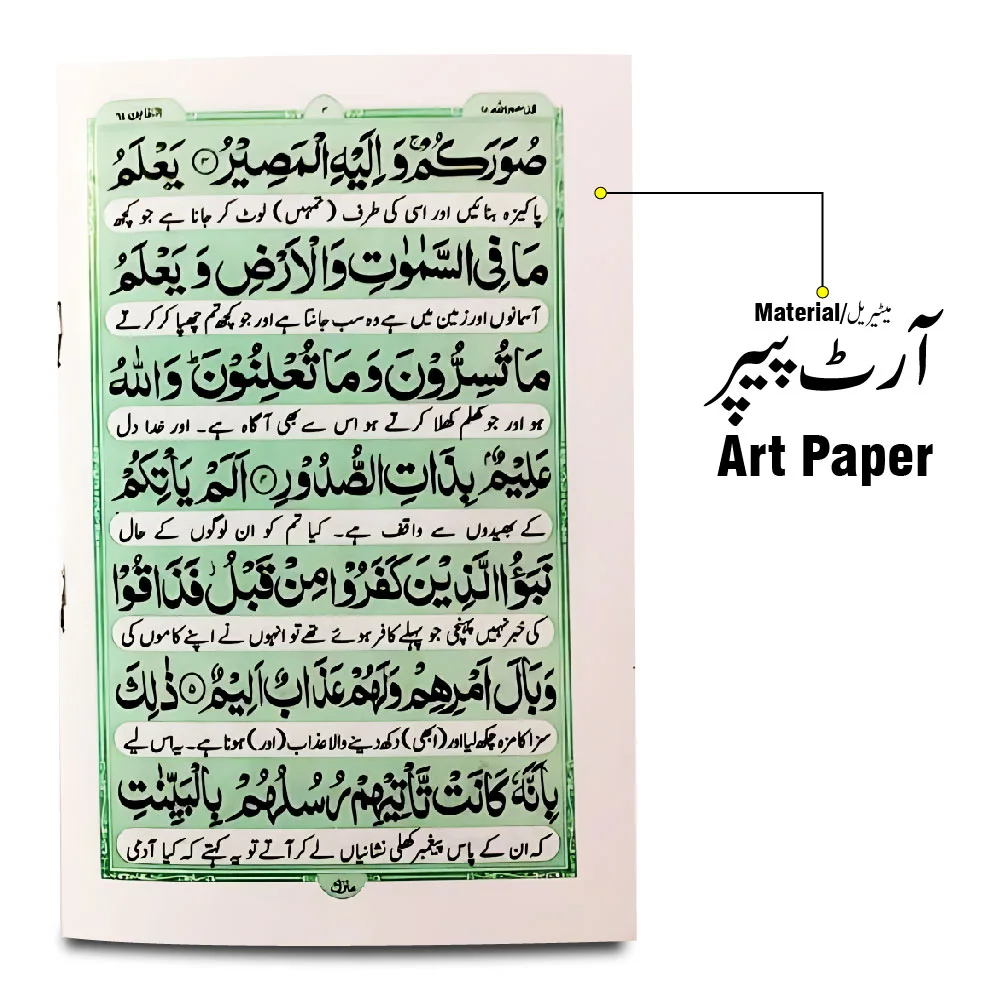 التغابن ٦٤
٢
صُوَرَكُمْ ۚ وَ اِلَيْهِ الْمَصِيْرُ ﴿۳﴾ يَعْلَمُ
پاکیزہ بنائیں اور اسی کی طرف (تمہیں) لوٹ کر جانا ہے جو کچھ
مَا فِي السَّمٰوٰتِ وَالْاَرْضِ وَ يَعْلَمُ
آسمانوں اور زمین میں ہے وہ سب جانتا ہے اور جو کچھ تم چھپا کر کرتے
مَا تُسِرُّوْنَ وَ مَا تُعْلِنُوْنَ ؕ وَاللّٰهُ
ہو اور جو کھلم کھلا کرتے ہو اس سے بھی آگاہ ہے۔ اور خدا دل
عَلِيْمٌۢ بِذَاتِ الصُّدُوْرِ ﴿۴﴾ اَلَمْ يَاْتِكُمْ
کے بھیدوں سے واقف ہے۔ کیا تم کو ان لوگوں کے حال
نَبَؤُا الَّذِيْنَ كَفَرُوْا مِنْ قَبْلُ ؗ فَذَاقُوْا
کی خبر نہیں پہنچی جو پہلے کافر ہوئے تھے تو انہوں نے اپنے کاموں کی
وَبَالَ اَمْرِهِمْ وَلَهُمْ عَذَابٌ اَلِيْمٌ ﴿۵﴾ ذٰلِكَ
سزا کا مزہ چکھ لیا اور (ابھی) دکھ دینے والا عذاب (اور) ہونا ہے۔ یہ اس لیے
بِاَنَّهٗ كَانَتْ تَّاْتِيْهِمْ رُسُلُهُمْ بِالْبَيِّنٰتِ
کہ ان کے پاس پیغمبر کھلی نشانیاں لے کر آتے تو یہ کہتے کہ کیا آدمی
Material/میٹیریل
آرٹ پیپر
Art Paper